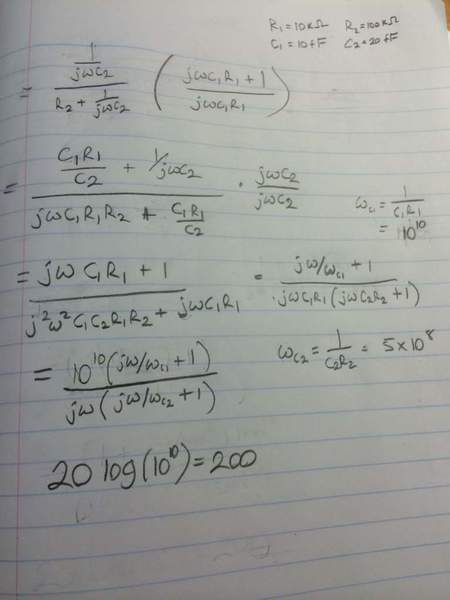 R₁ = 10kΩ R₂ = 100kΩ
C₁ = 10fF C₂ = 20fF
= (1/jωC₂)/(R₂ + 1/jωC₂) ((jωC₁R₁ + 1)/(jωC₁R₁))
= (C₁R₁/C₂ + 1/jωC₂)/(jωC₁R₁R₂ + C₁R₁/C₂) · jωC₂/jωC₂
ω_c₁ = 1/(C₁R₁)
= 10¹⁰
= (jωC₁R₁ + 1)/(j²ω²C₁C₂R₁R₂ + jωC₁R₁) = (jω/ω_c₁ + 1)/(jωC₁R₁(jωC₂R₂ + 1))
ω_c₂ = 1/(C₂R₂) = 5×10⁸
= 10¹⁰(jω/ω_c₁ + 1)/(jω(jω/ω_c₂ + 1))
20 log(10¹⁰) = 200